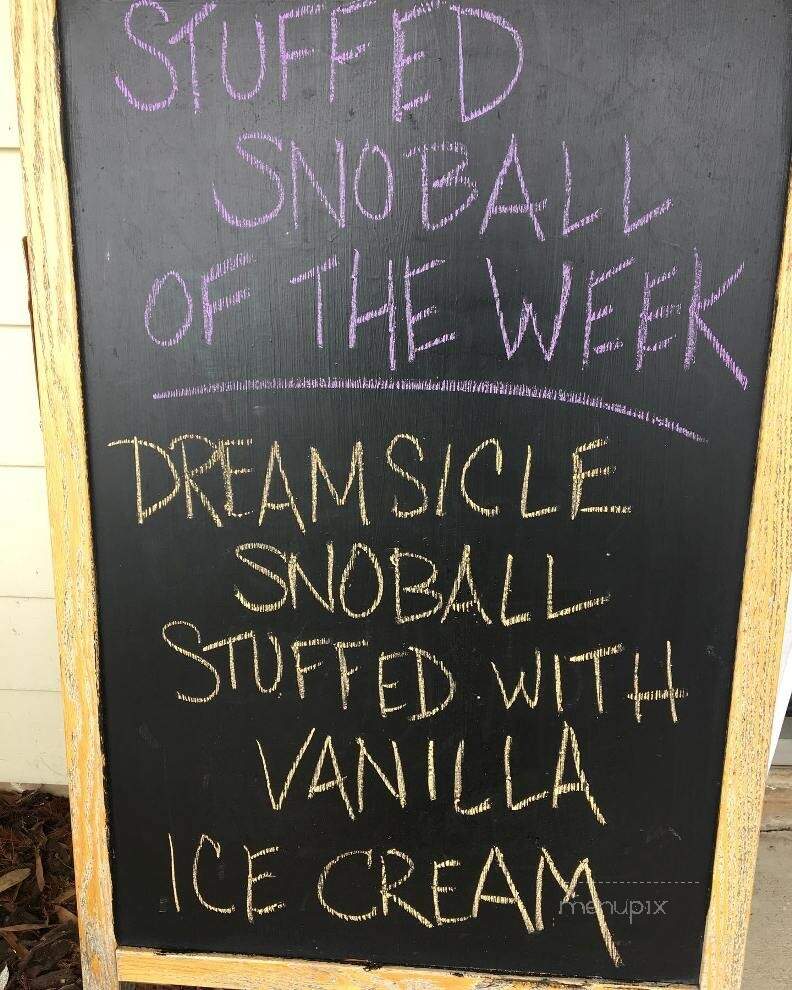 STUFFED
SNOBALL
OF THE WEEK
DREAMSICLE
SNOBALL
STUFFED WITH
VANILLA
ICE CREAM
menupix